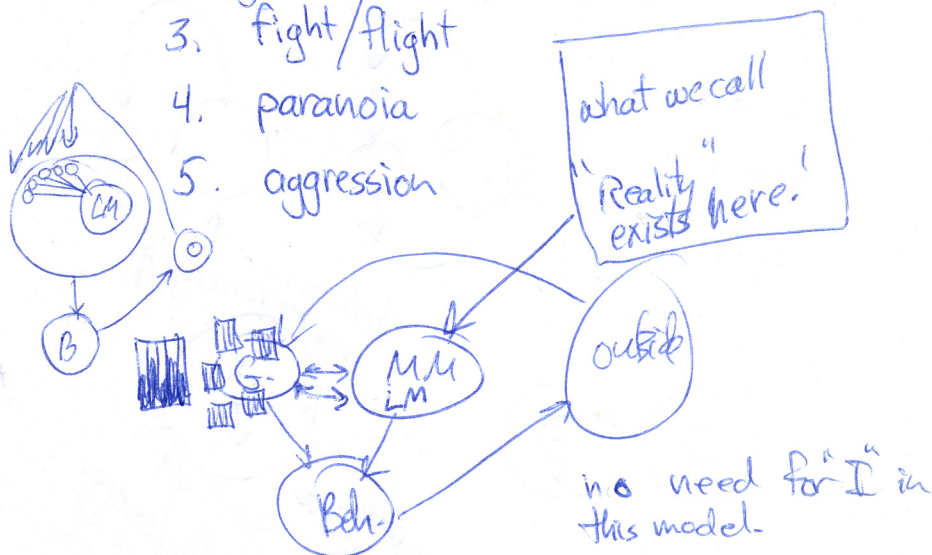 3. fight/flight
4. paranoia
5. aggression
what we call
"Reality"
exists here.!
LM
O
B
G.
MM
LM
outside
Beh.
no need for "I" in
this model.